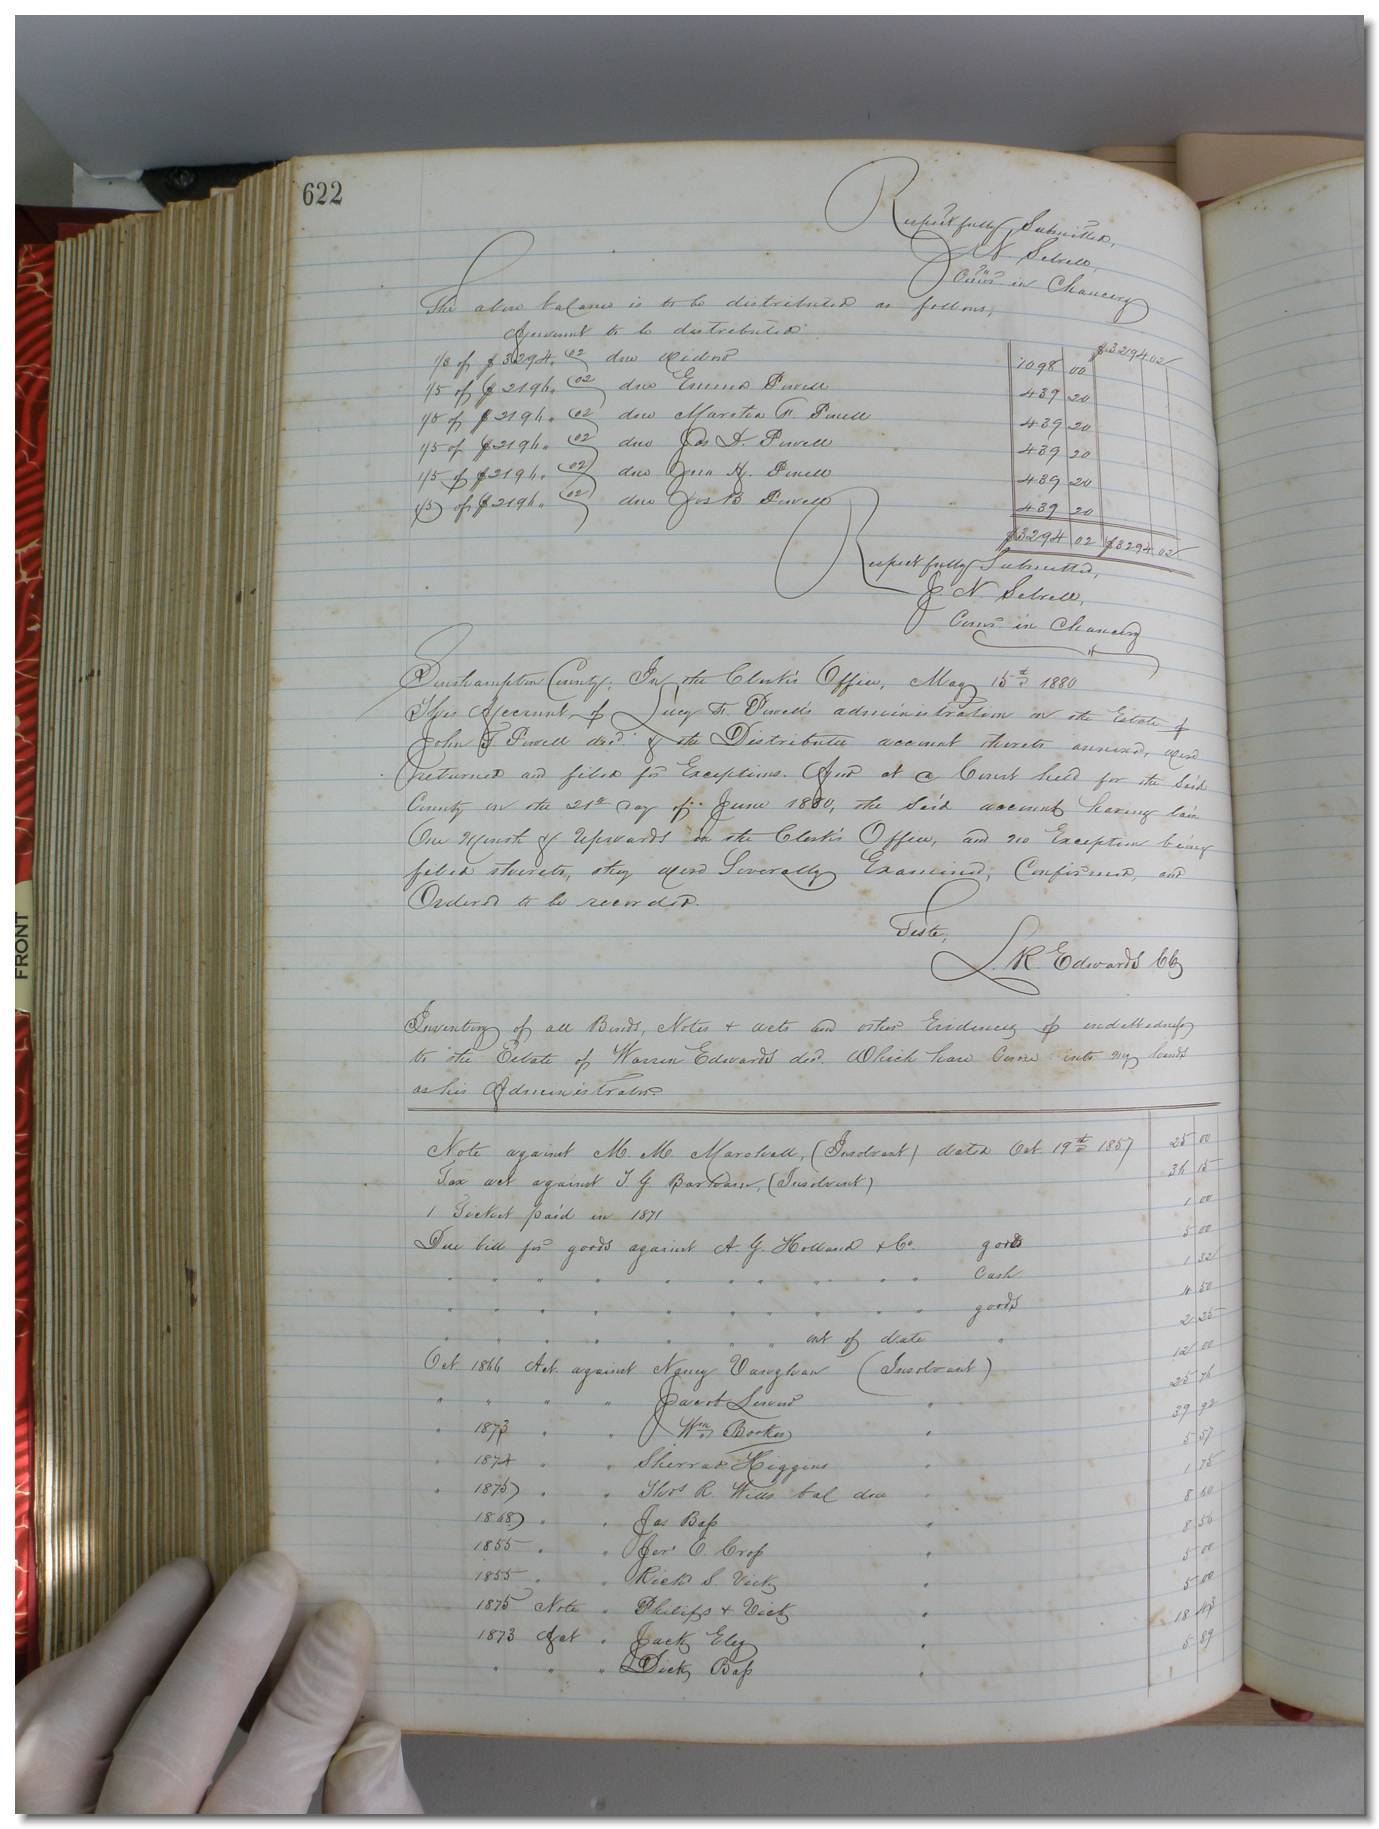 622
Respectfully Submitted,
J. N. Sebrell,
Comr in Chancery
The above balance is to be distributed as follows,
Amount to be distributed $3294.02
1/3 of $3294.02 due widow 1098 00
1/5 of $2196.02 due Emma Powell 439 20
1/5 of $2196.02 due F. Powell 439 20
1/5 of $2196.02 due Jas D. Powell 439 20
1/5 of $2196.02 due H. Powell 439 20
1/5 of $2196.02 due Jos B. Powell 439 20
$3294 02 $3294.02
Respectfully Submitted,
J. N. Sebrell,
Comr in Chancery
Southampton County, In the Clerk's Office, May 15th 1880
This Account of Lucy F. Powell's administration on the Estate of
John T Powell decd & the Distributee account thereto annexed, were
returned and filed for Exceptions. And at a Court held for the Said
County on the 21st day of June 1880, the Said account having lain
One Month & Upwards in the Clerk's Office, and no Exception being
filed thereto, they were Severally Examined, Confirmed, and
Ordered to be recorded.
Teste,
L. R. Edwards CC
Inventory of all Bonds, Notes & accts and other Evidences of indebtedness
to the Estate of Warren Edwards decd. Which have Come into my hands
as his Administrator
Note against M. M. Marshall, (Insolvent) dated Oct. 19th 1857 25 00
Tax act against T G. Barham, (Insolvent) 36 15
1 Ticket paid in 1871 1 00
Due bill for goods against A. G. Holland & Co. goods 5 00
" " " " " " " " " " cash 1 32
" " " " " " " " " " goods 4 50
" " " " " " " out of date " 2 25
Oct 1866 Act. against Nancy Vaughan (Insolvent) 12 00
" " " " Jacob " 25 76
" 1873 " " Wm " 39 92
" 1874 " " Sherrad Higgins 5 57
" 1875 " " Thos R. Wills bal due " 1 75
1868 " " Jas Bass " 8 60
1855 " " E. " 8 56
1855 " " Richd S. Vick 5 00
1875 Note " Philips & Vick " 5 00
1873 Act " Jack Eley " 18 43
" " " Dick Bass " 5 89
FRONT